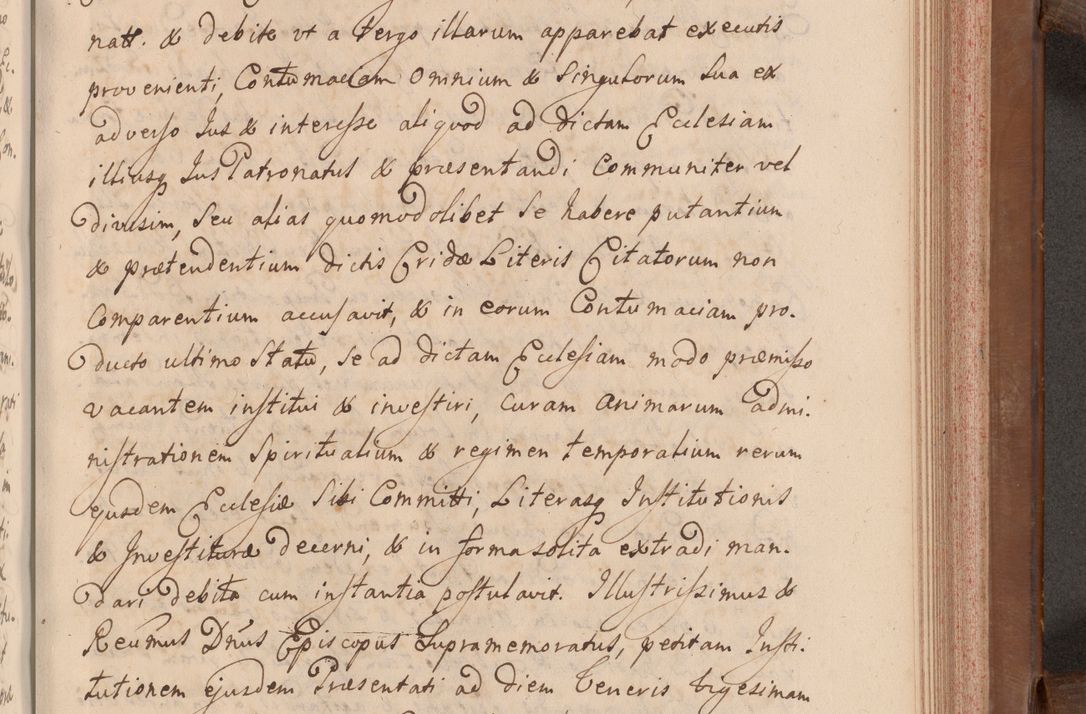 natt. & debite vt a tergo illarum apparebat executis
provenienti, Contumaciam Omnium & Singulorum Sua ex
adverso Jus & interesse aliquod ad dictam Ecclesiam
illiusq Jus Patronatus & præsentandi Communiter vel
divisim, Seu alias quomodolibet Se habere putantium
& prætendentium dictis Cridæ Literis Citatorum non
Comparentium accusavit, & in eorum Contumaciam pro.
ducto ultimo Statu, Se ad dictam Ecclesiam modo præmisso
vacantem institui & investiri, Curam Animarum admi.
nistrationem Spiritualium & regimen temporalium rerum
ejusdem Ecclesiæ Sibi Committi, Literasq Institutionis
& Investituræ decerni, & in forma solita extradi man.
dari debita cum instantia postulavit. Illustrissimus &
Reumus Dnus Episcopus Supramemoratus, petitam Insti.
tutionem ejusdem Præsentati ad diem Veneris trigesimam